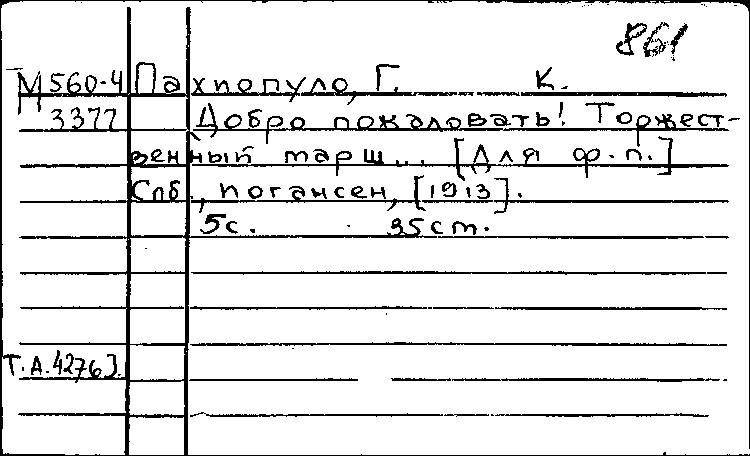 861
М 560-4 Пахиопуло, Г. К.
3377 Добро пожаловать! Торжест-
венный марш... [Для ф.п.]
Спб., Иогансен, [1913].
5с. 35ст.
Т.А.4276].